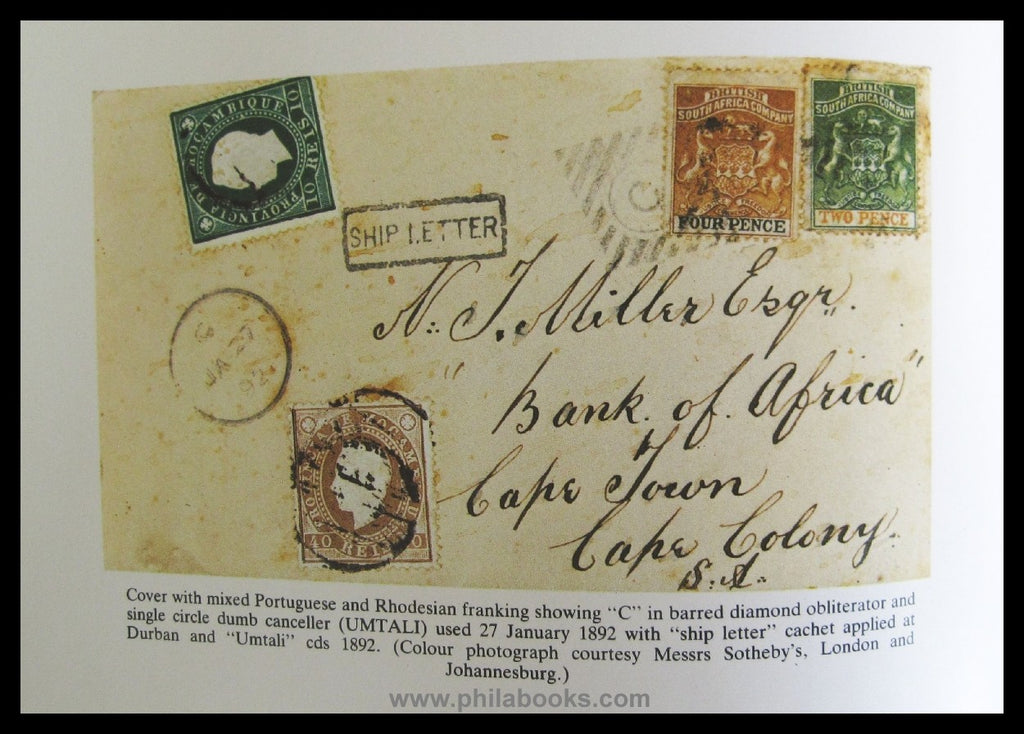 PROVINCIA DE MOÇAMBIQUE
10 REIS 10
BRITISH
SOUTH AFRICA COMPANY
FOUR PENCE
BRITISH
SOUTH AFRICA COMPANY
TWO PENCE
C
SHIP LETTER
N. J. Miller Esqr.
C
JA 27
92
"Bank of Africa"
Cape Town
Cape Colony.
S.A.
40 REIS
Cover with mixed Portuguese and Rhodesian franking showing "C" in barred diamond obliterator and
single circle dumb canceller (UMTALI) used 27 January 1892 with "ship letter" cachet applied at
Durban and "Umtali" cds 1892. (Colour photograph courtesy Messrs Sotheby's, London and
Johannesburg.)
www.philabooks.com